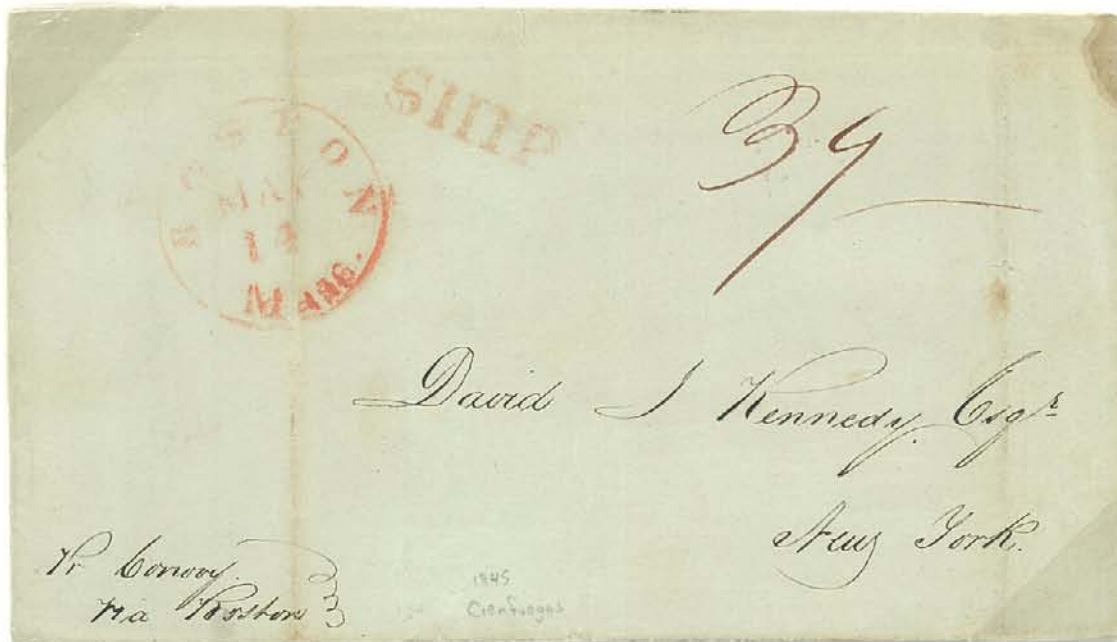 SHIP
BOSTON
MAY
14
Mass.
39
David J Kennedy Esqr
New York.
Pr Conway
via Boston
1845
Cienfuegos